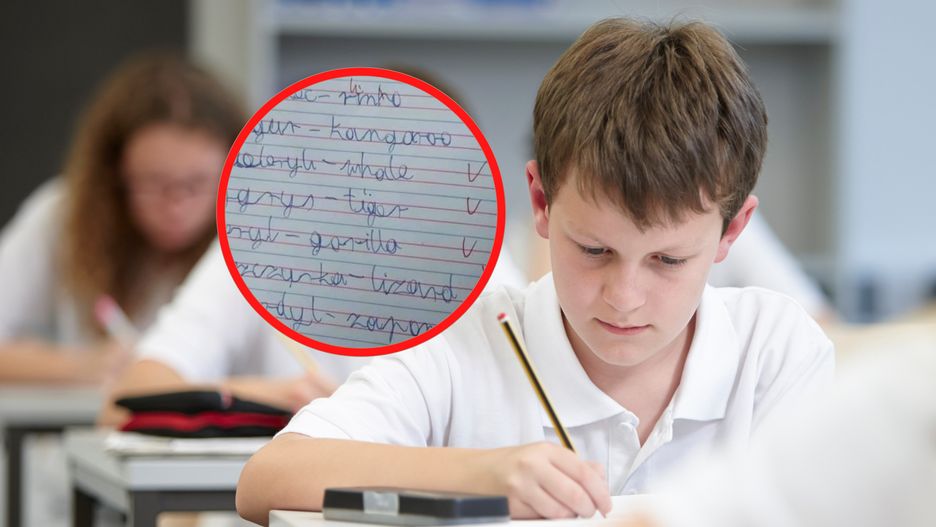 rinho
gur - kangaroo
eloryb - whale V
grys - tiger V
ryl - gorilla V
zczurka - lizard
odyl - zapom